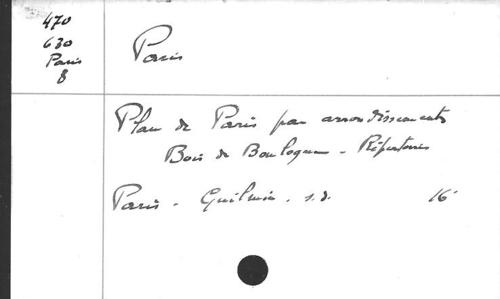 470
630
Paris
8
Paris
Plan de Paris par arrondissements
Bois de Boulogne - Répertoires
Paris - Guilmin. s.d. 16°